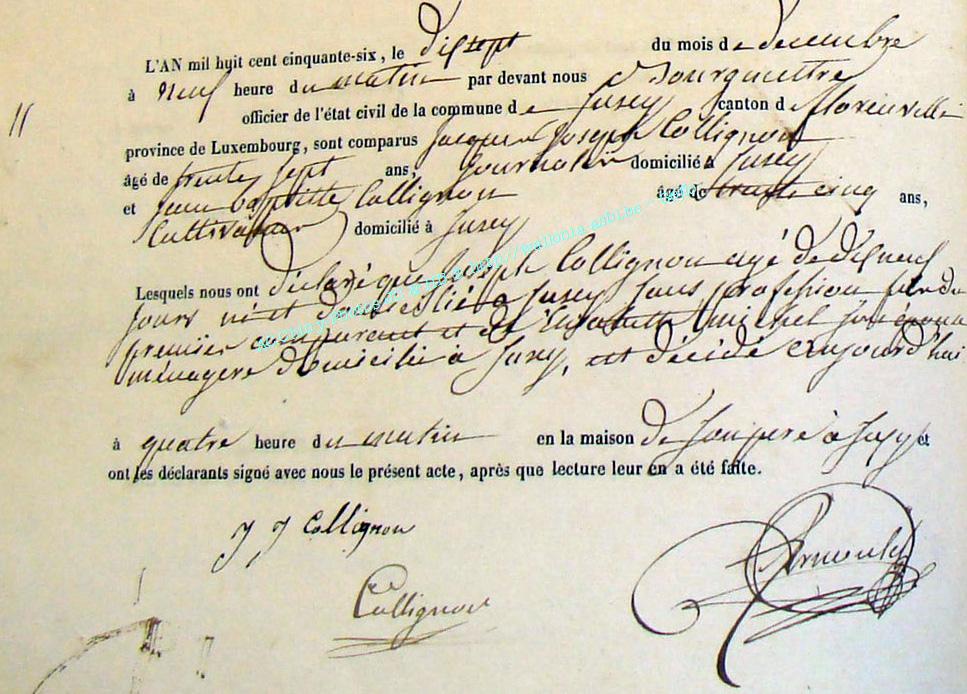 L'AN mil huit cent cinquante-six, le dissept du mois de decembre
à neuf heure du matin par devant nous
11
officier de l'état civil de la commune de Jusey canton d Florenville
province de Luxembourg, sont comparus Jacques Joseph Collignon
âgé de trente sept ans, Journalier domicilié à Jusey
et Jean baptiste Collignon âgé de trente cinq ans,
Cultivateur domicilié à Jusey
Lesquels nous ont déclaré que Joseph Collignon agé de disneuf
jours né et domicilié à Jusey sans profession fils du
premier comparent et de Elisabeth Michel son epouse
ménagère domicilié à Jusey, est décidé aujourd'hui
à quatre heure du matin en la maison de son pere à Jusey et
ont les déclarants signé avec nous le présent acte, après que lecture leur en a été faite.
J J Collignon
Collignon